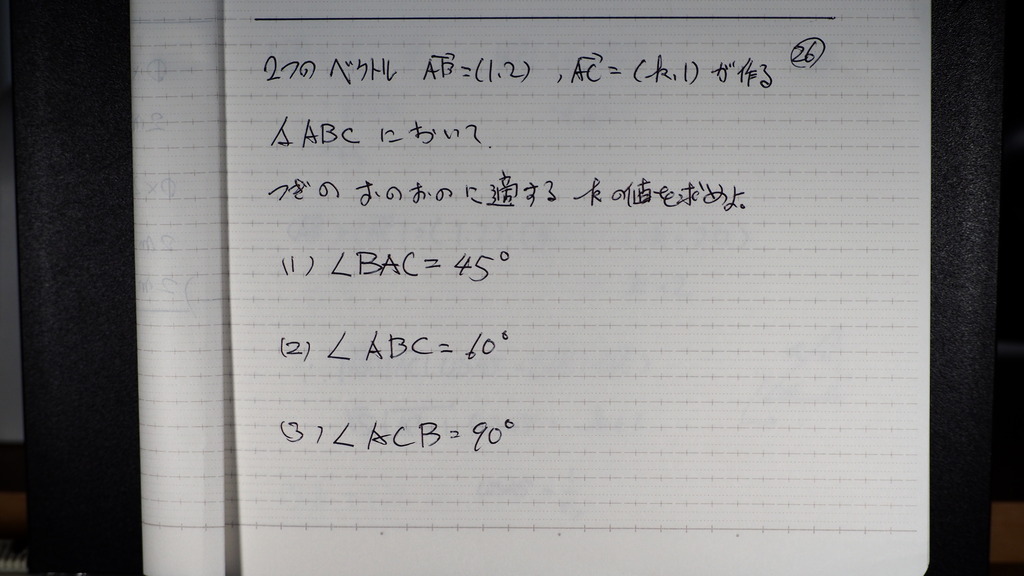 26
2つの ベクトル AB→=(1.2) , AC→=(k.1) が作る
△ABC において.
つぎの おのおのに適する kの値を求めよ。
(1) ∠BAC=45°
(2) ∠ABC=60°
(3) ∠ACB=90°